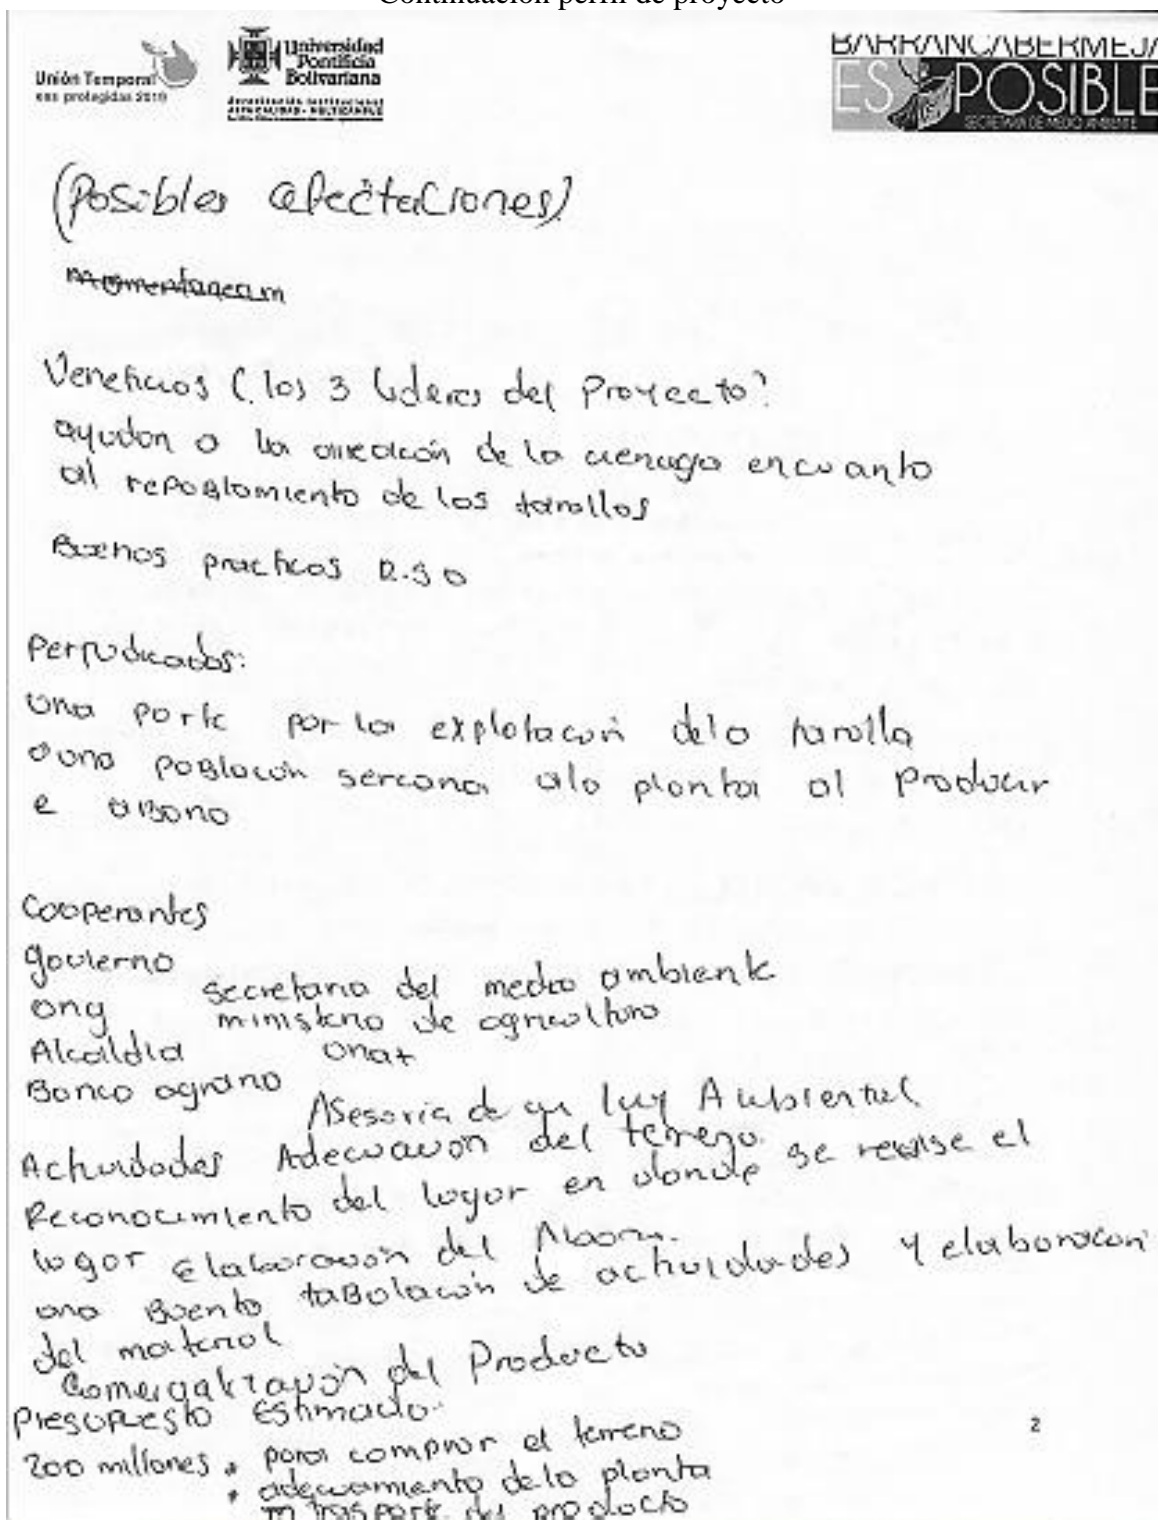 Continuación perfil de proyecto
Unión Temporal
Universidad
Pontificia
Bolivariana
BARRANCABERMEJA
ES POSIBLE
SECRETARIA DE MEDIO AMBIENTE
(Posibles afectaciones)
Momentaneam
Veneficios (los 3 lideres del Proyecto?
ayudan a la de la cienaga encuanto
al repoblamiento de los tarullos
Buenos practicas
Perjudicados:
una parte por la explotacion dela tarulla
a una poblacion sercana ala planta al Producir
e abono
Cooperantes
govierno
secretaria del medio ambiente
ong
ministerio de agricultura
Alcaldia
Banco agrario
Asesoria de Ambiental
Actividades Adecuacion del terreno.
Reconocimiento del lugar en donde se realise el
lugar Elaboracion del Abono.
una buenta tabulacion de actividades y elaboracion
del material
Comercialización del Producto
Presupuesto Estimado.
200 millones * para comprar el terreno
* adecuamiento dela planta
trasporte del producto
2